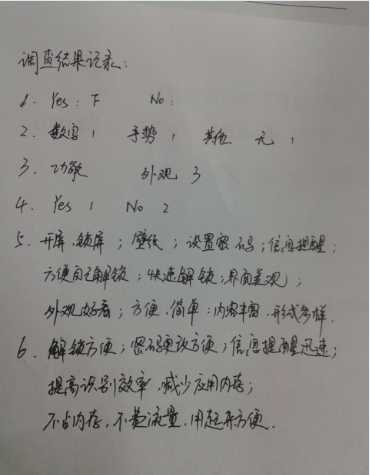 调查结果记录：
1. Yes：下 No：
2. 数字 1 手势 1 其他 无 1
3. 功能 外观 3
4. Yes 1 No 2
5. 开屏、锁屏；壁纸；设置密码；信息提醒；
方便自己解锁；快速解锁；界面美观；
外观好看；方便、简单；内容丰富、形式多样.
6. 解锁方便；密码更改方便；信息提醒迅速；
提高识别效率、减少应用内存；
不占内存、不费流量、用起来方便.